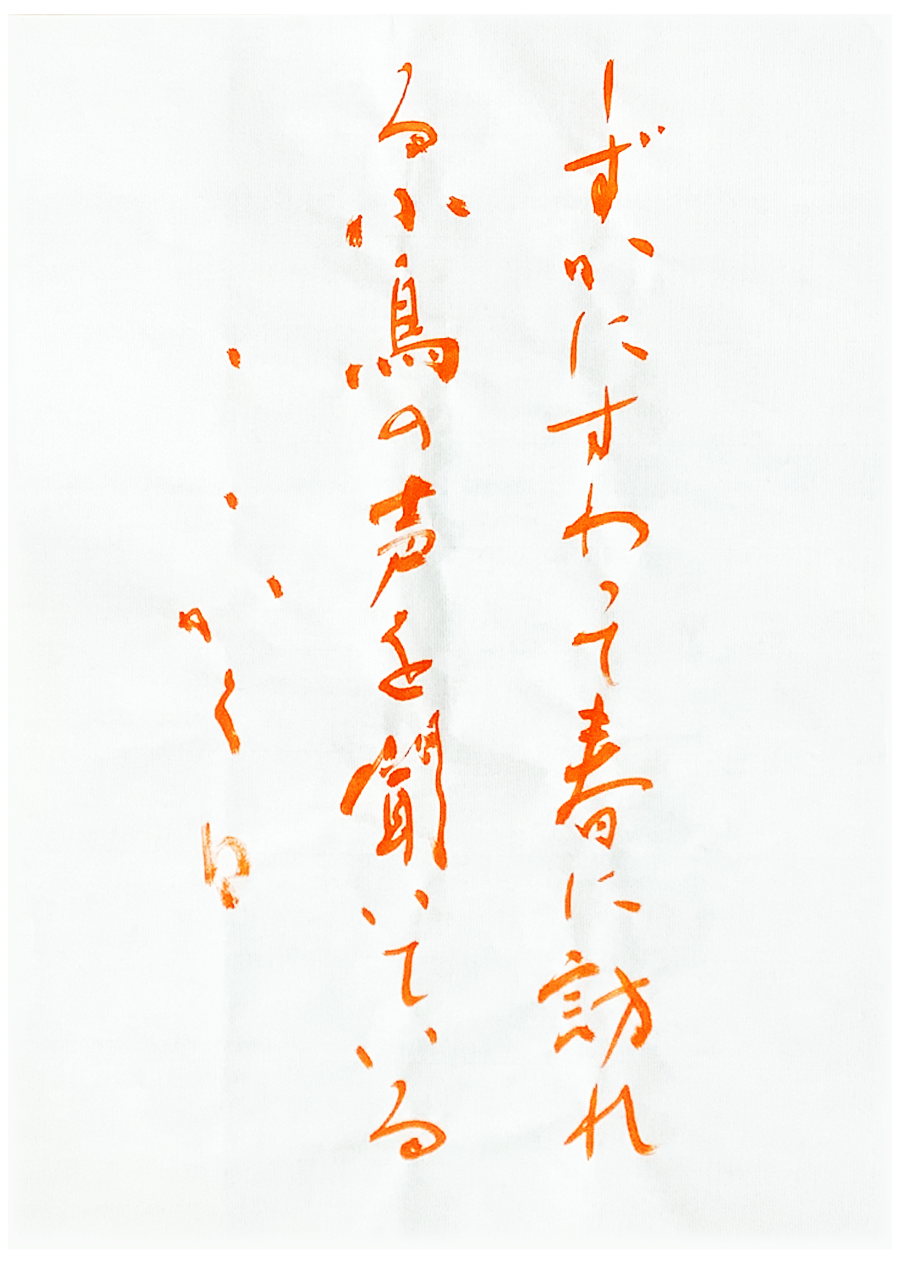 しずかにすわって春に訪れ
る小鳥の声を聞いている